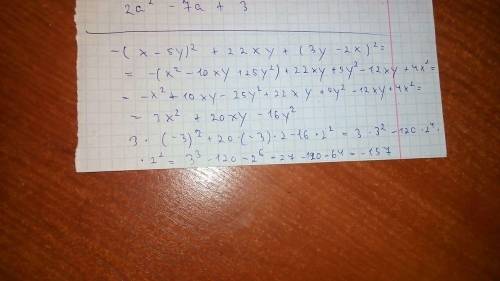 2a² - 7a + 3
-(x - 5y)² + 22xy + (3y - 2x)² =
= -(x² - 10xy + 25y²) + 22xy + 9y² - 12xy + 4x² =
= -x² + 10xy - 25y² + 22xy + 9y² - 12xy + 4x² =
= 3x² + 20xy - 16y²
3 · (-3)² + 20 · (-3) · 2 - 16 · 2² = 3 · 3² - 120 - 2⁴ ·
· 2² = 3³ - 120 - 2⁶ = 27 - 120 - 64 = -157